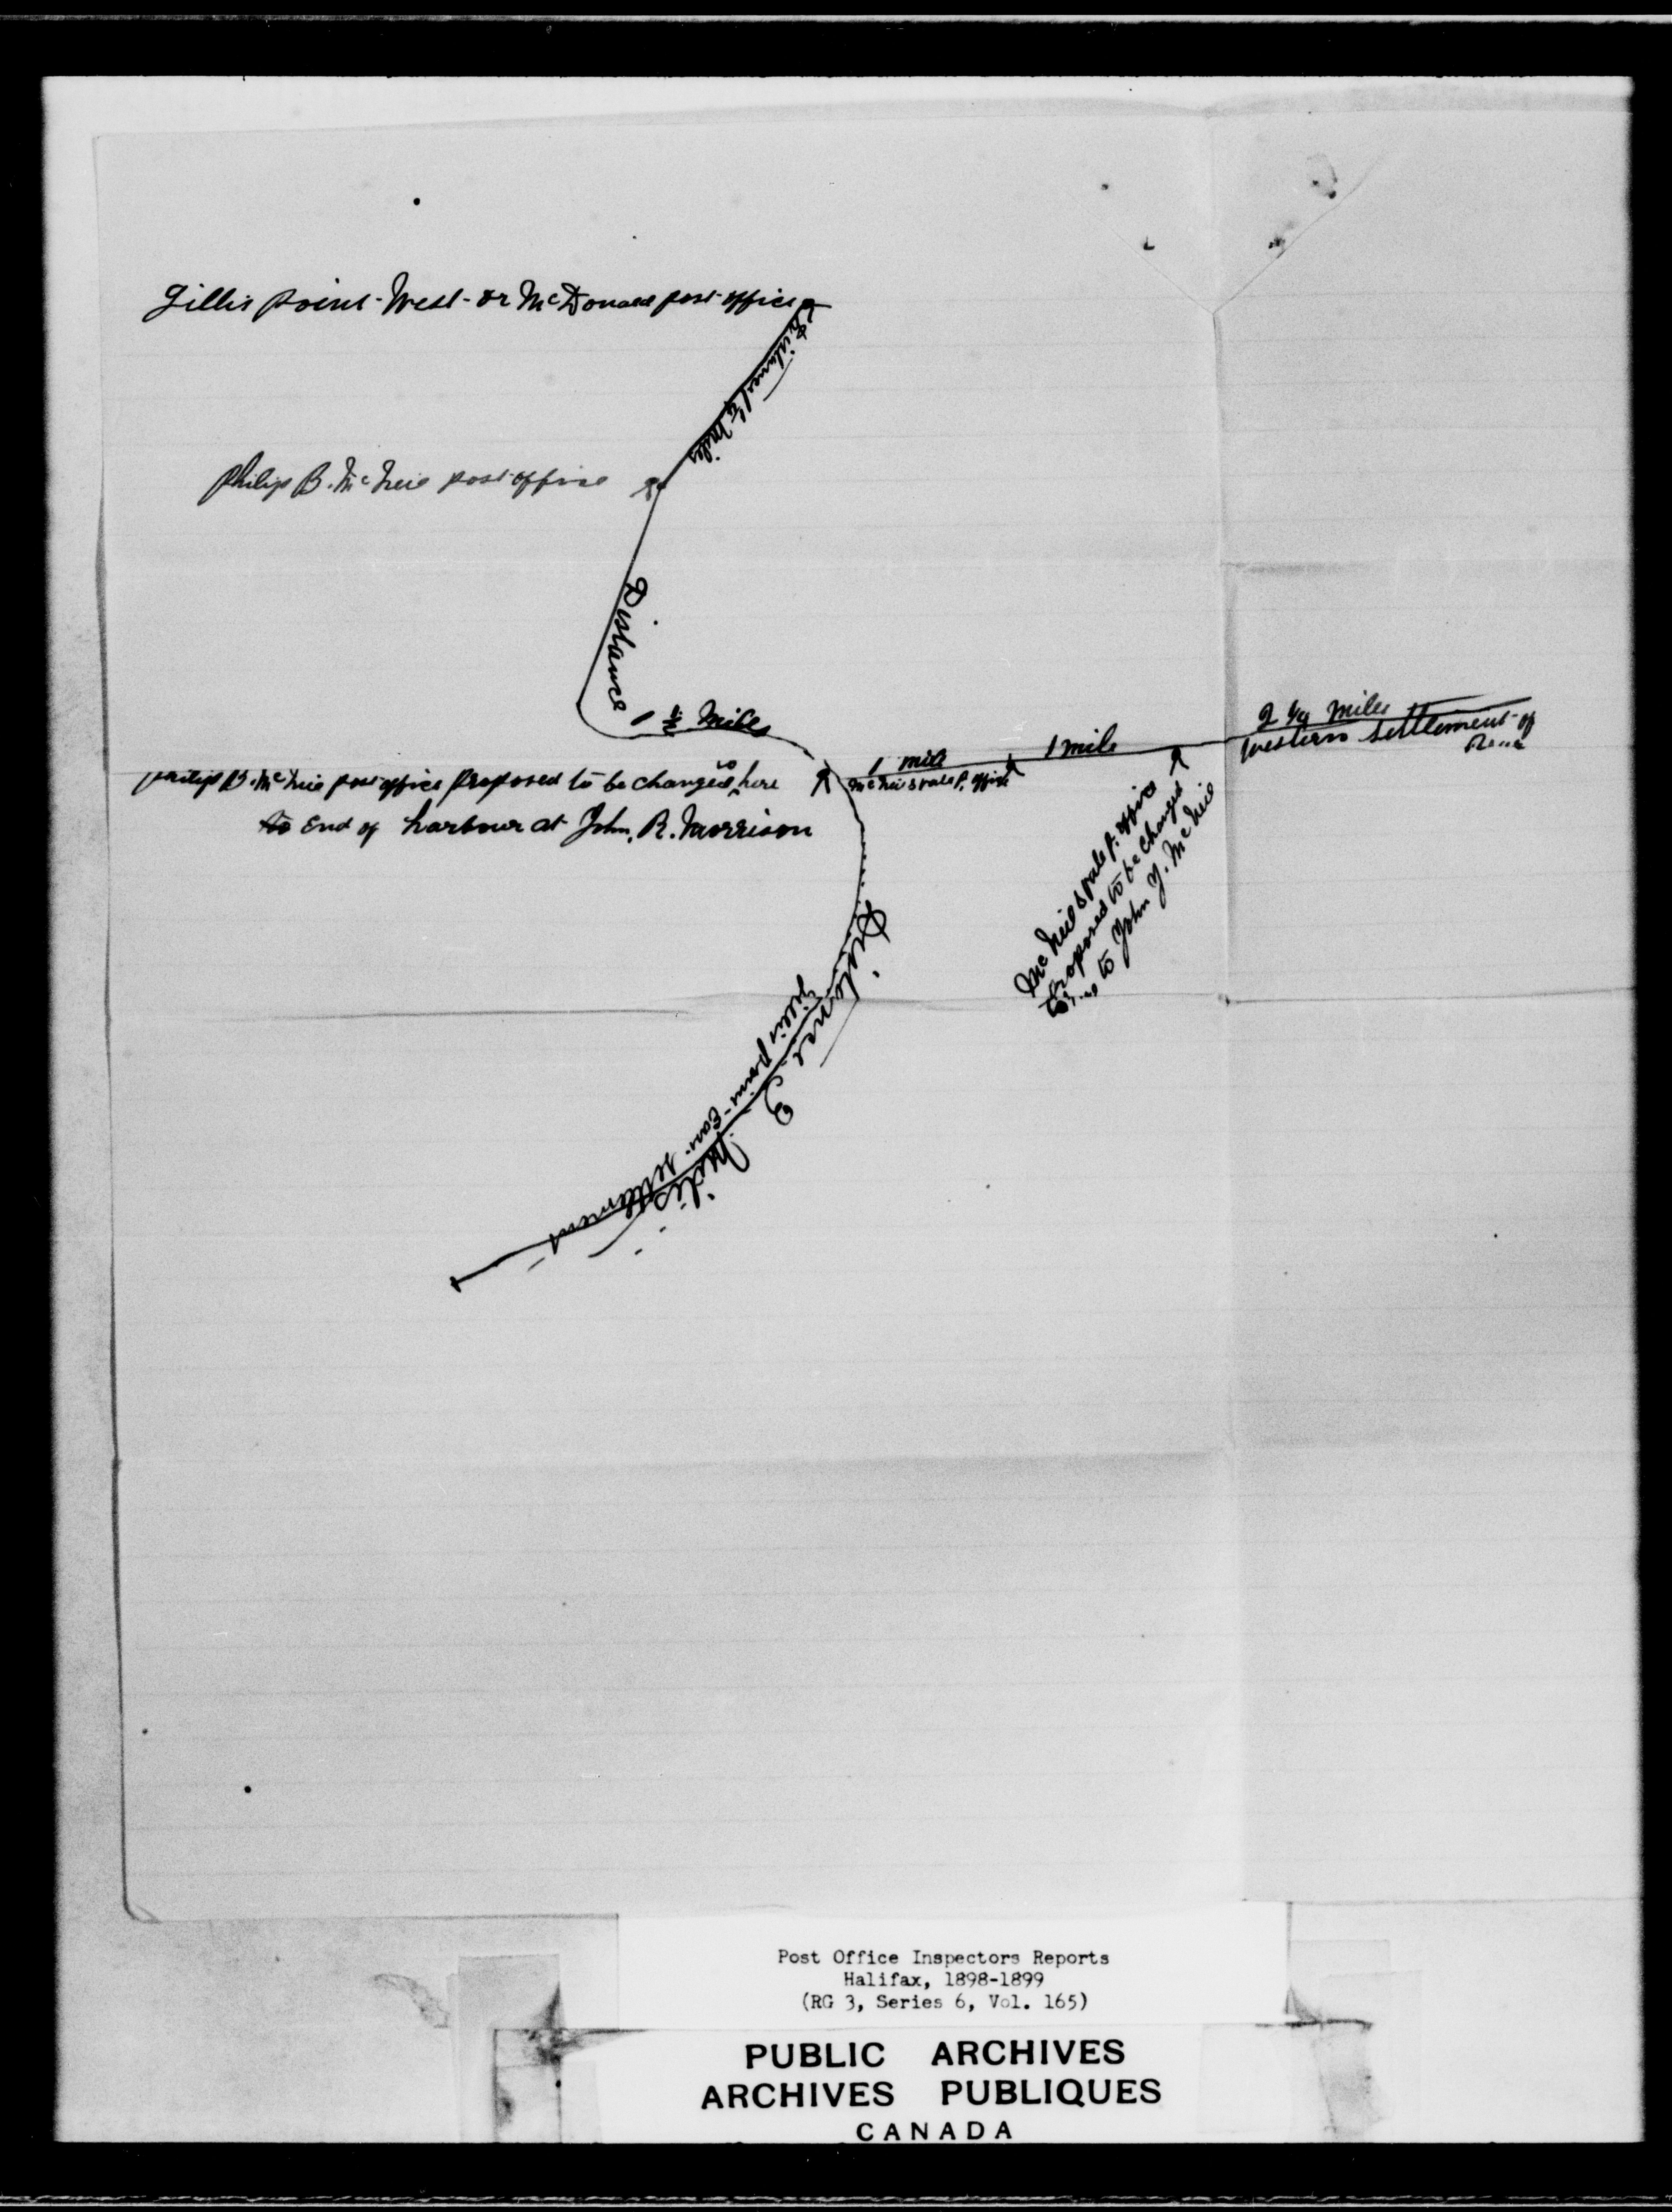 Gillis Point West or McDonald post office
Distance 1 1/2 miles
Philip B. McNeil post office
Distance
1 1/2 Miles
1 mile
1 mile
2 1/4 miles
McNeils vale P. office
Western Settlement of
Philip B. McNeil post office proposed to be changed to here
to End of harbour at John. R. Morrison
McNeils vale P. office
proposed to be changed
to John Y. McNeil
Distance 3 Miles
Gillis Point East settlement
Post Office Inspectors Reports
Halifax, 1898-1899
(RG 3, Series 6, Vol. 165)
PUBLIC ARCHIVES
ARCHIVES PUBLIQUES
CANADA